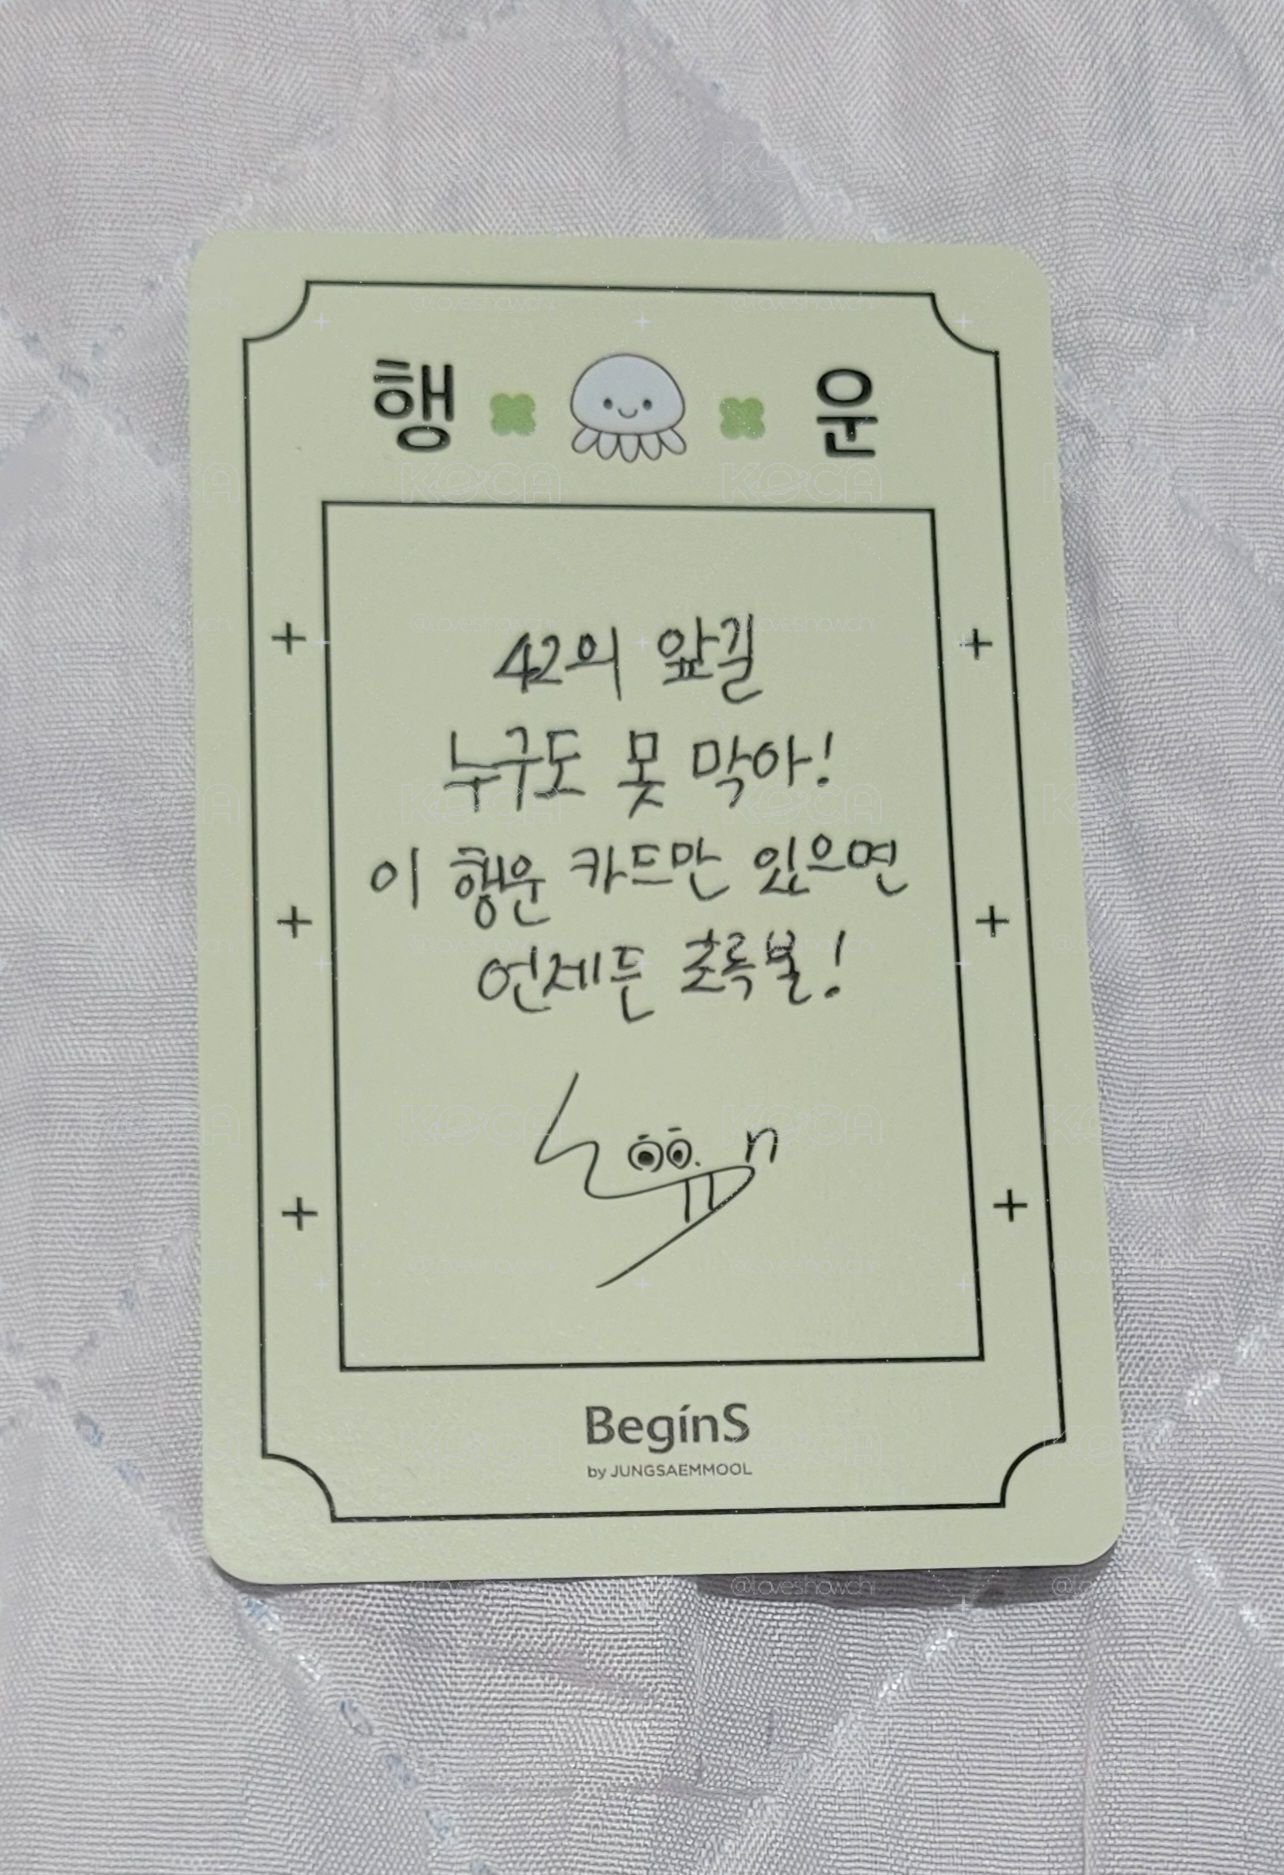 행 운
42의 앞길
누구도 못 막아!
이 행운 카드만 있으면
언제든 초록불!
BeginS
by JUNGSAEMMOOL
KOCA
@loveshowchi